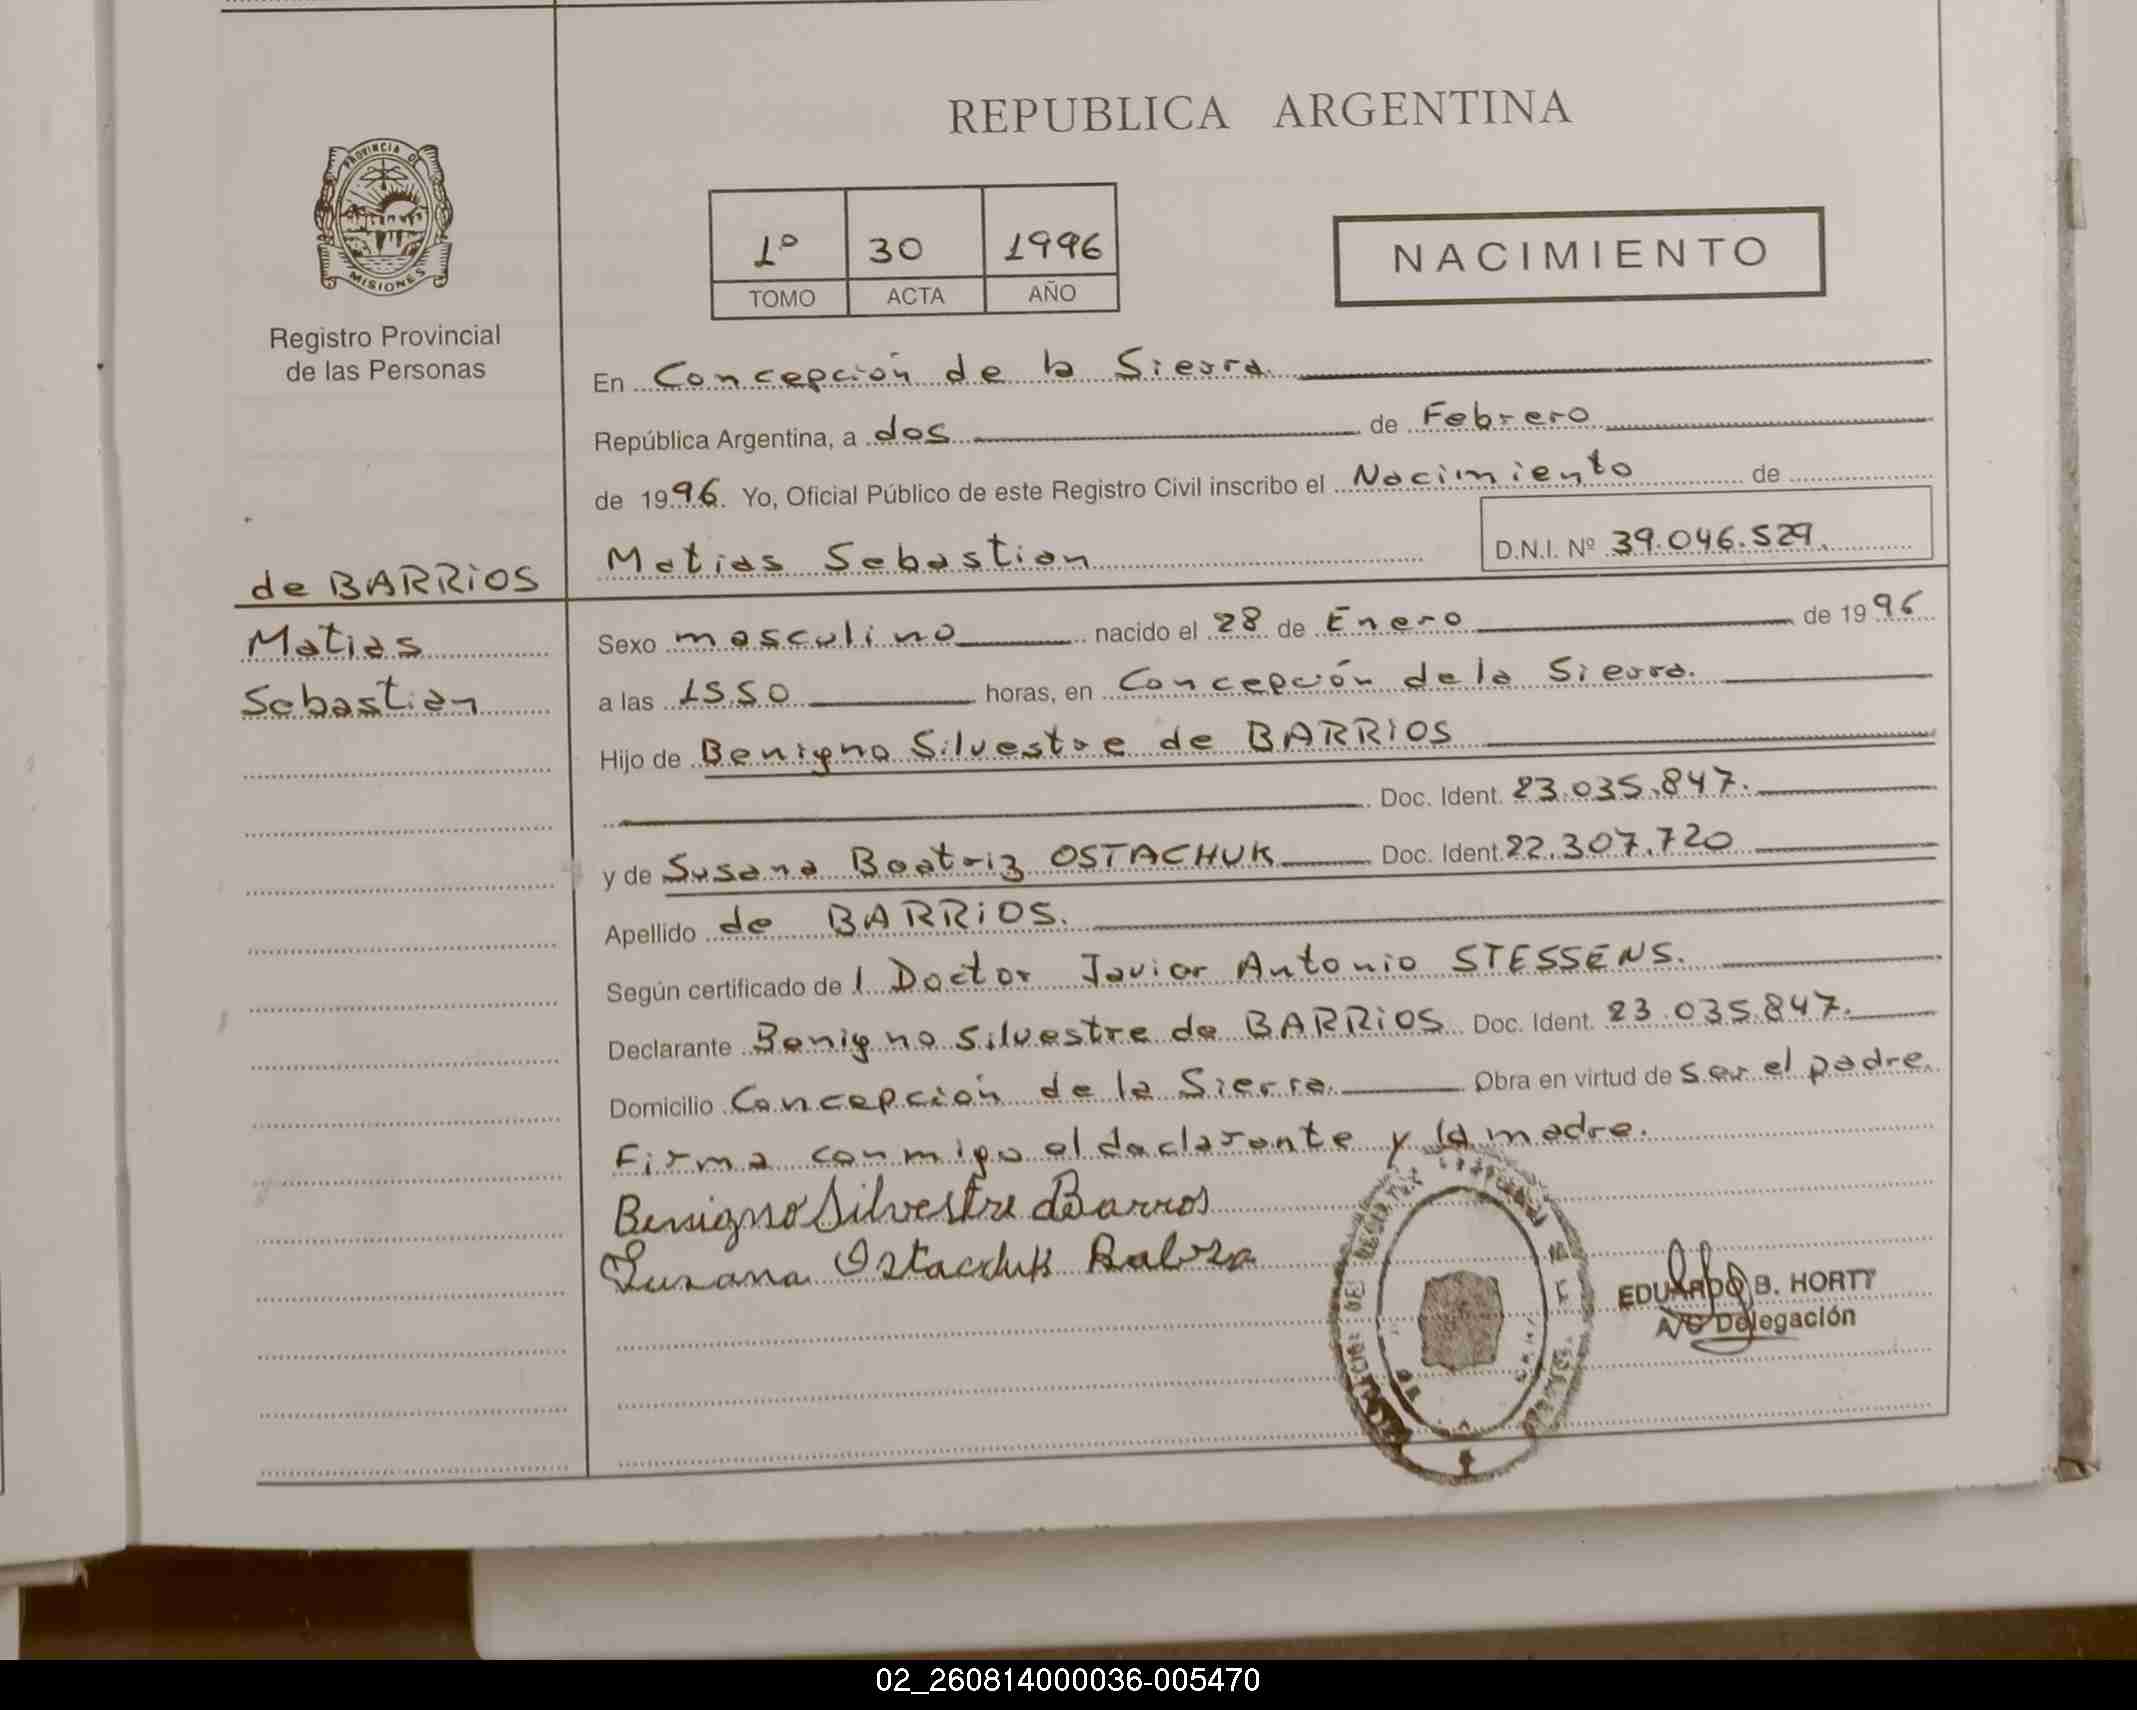 REPUBLICA ARGENTINA
PROVINCIA DE
MISIONES
Registro Provincial
de las Personas
1º 30 1996
TOMO ACTA AÑO
NACIMIENTO
En Concepción de la Sierra.
República Argentina, a dos de Febrero
de 1996. Yo, Oficial Público de este Registro Civil inscribo el Nacimiento de
Matias Sebastian D.N.I. Nº 39.046.529.
de BARRiOS
Matias
Sebastian
Sexo masculino nacido el 28 de Enero de 1996
a las 1550 horas, en Concepción de la Sierra.
Hijo de Benigno Silvestre de BARRiOS
Doc. Ident. 23.035.847.
y de Susana Beatriz OSTACHUK Doc. Ident. 22.307.720
Apellido de BARRiOS.
Según certificado de l Doctor Javier Antonio STESSENS.
Declarante Benigno Silvestre de BARRiOS Doc. Ident. 23.035.847.
Domicilio Concepción de la Sierra. Obra en virtud de ser el padre.
Firma conmigo el declarante y la madre.
Benigno Silvestre Barros
Susana
EDUARDO B. HORTT
A/C Delegación
02_260814000036-005470